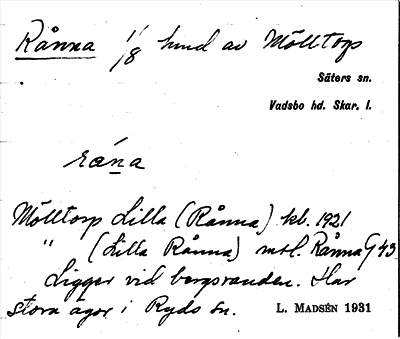 Rånna 1/8 hmd av Mölltorp
Säters sn.
Vadsbo hd. Skar. l.
råna
Mölltorp Lilla (Rånna) kb. 1921
" (Lilla Rånna) mtl. Rånna G 43
Ligger vid bergsranden. Har
stora ägor i Ryds sn.
L. MADSÉN 1931